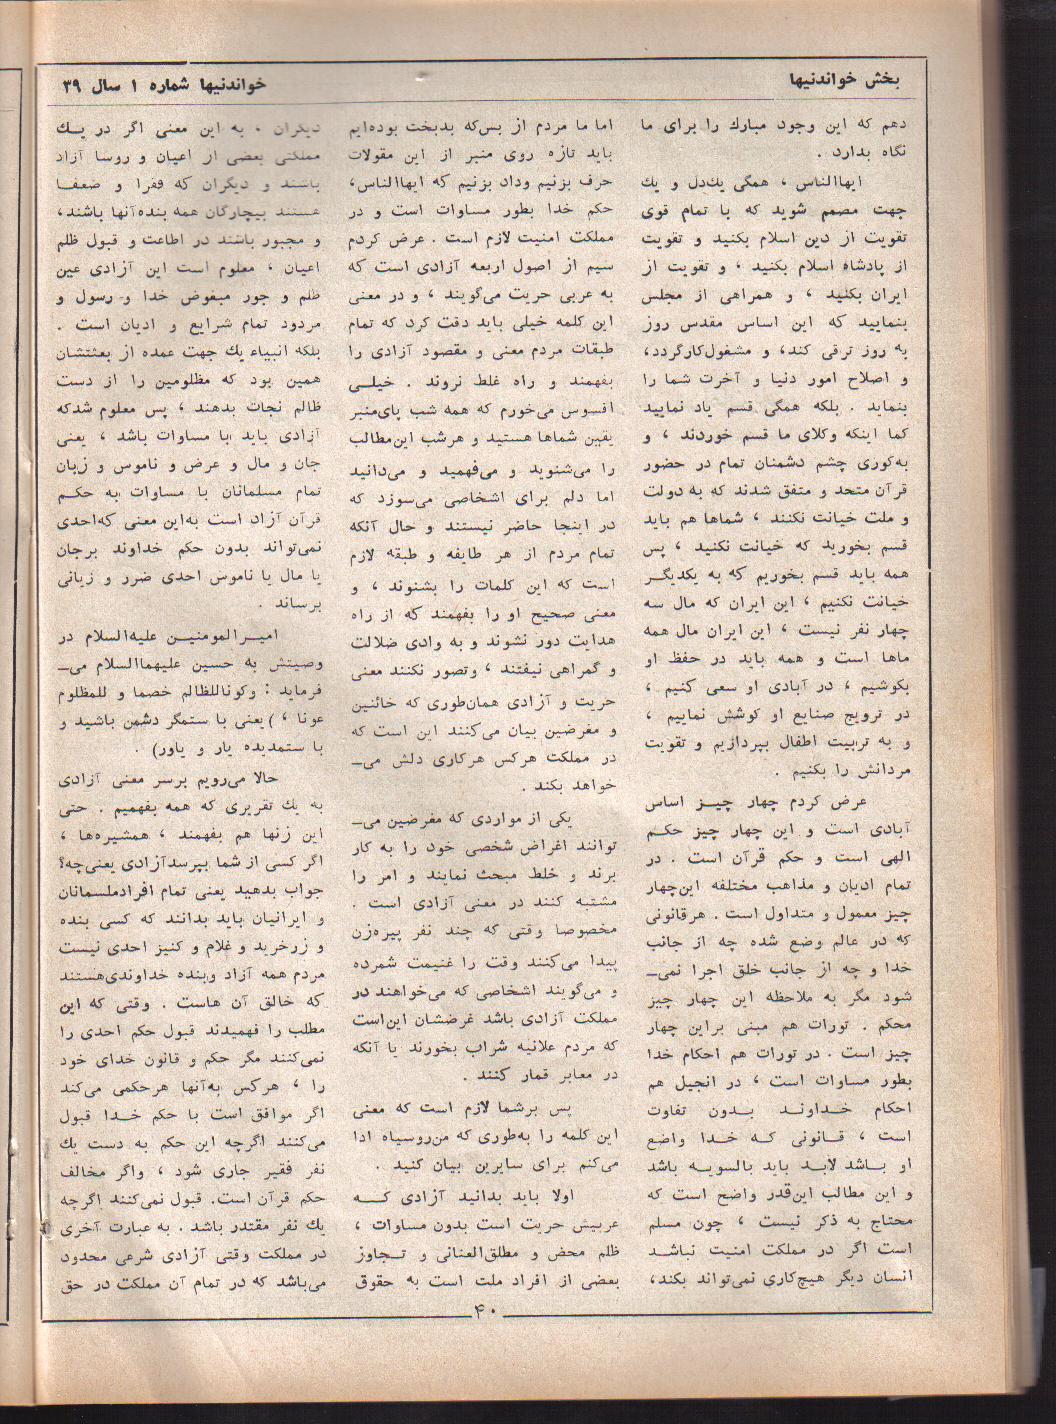 بخش خواندنیها
خواندنیها شماره ۱ سال ۳۹
دهم که این وجود مبارك را برای ما
نگاه بدارد .
ایهاالناس ، همگی یك‌دل و یك
جهت مصمم شوید که با تمام قوی
تقویت از دین اسلام بکنید و تقویت
از پادشاه اسلام بکنید ، و تقویت از
ایران بکنید ، و همراهی از مجلس
بنمایید که این اساس مقدس روز
به روز ترقی کند، و مشغول‌کارگردد،
و اصلاح امور دنیا و آخرت شما را
بنماید . بلکه همگی قسم یاد نمایید
کما اینکه وکلای ما قسم خوردند ، و
به‌کوری چشم دشمنان تمام در حضور
قرآن متحد و متفق شدند که به دولت
و ملت خیانت نکنند ، شماها هم باید
قسم بخورید که خیانت نکنید ، پس
همه باید قسم بخوریم که به یکدیگـر
خیانت نکنیم ، این ایران که مال سه
چهار نفر نیست ، این ایران مال همه
ماها است و همه باید در حفظ او
بکوشیم ، در آبادی او سعی کنیم ،
در ترویج صنایع او کوشش نماییم ،
و به تربیت اطفال بپردازیم و تقویت
مردانش را بکنیم .
عرض کردم چهار چیـز اساس
آبادی است و این چهار چیز حکـم
الهی است و حکم قرآن است . در
تمام ادیان و مذاهب مختلفه این‌چهار
چیز معمول و متداول است . هرقانونی
که در عالم وضع شده چه از جانب
خدا و چه از جانب خلق اجرا نمی‌ـ
شود مگر به ملاحظه این چهار چیز
محکم . تورات هم مبنی براین چهار
چیز است . در تورات هم احکام خدا
بطور مساوات است ، در انجیل هم
احکام خداوند بدون تفاوت
است ، قانونی که خدا واضع
او باشد لابد باید بالسویه باشد
و این مطالب این‌قدر واضح است که
محتاج به ذکر نیست ، چون مسلم
است اگر در مملکت امنیت نباشد
انسان دیگر هیچ‌کاری نمی‌تواند بکند،
اما ما مردم از بس‌که بدبخت بوده‌ایم
باید تازه روی منبر از این مقولات
حرف بزنیم وداد بزنیم که ایهاالناس،
حکم خدا بطور مساوات است و در
مملکت امنیت لازم است . عرض کردم
سیم از اصول اربعه آزادی است که
به عربی حریت می‌گویند ، و در معنی
این کلمه خیلی باید دقت کرد که تمام
طبقات مردم معنی و مقصود آزادی را
بفهمند و راه غلط نروند . خیلـی
افسوس می‌خورم که همه شب پای‌منبر
یقین شماها هستید و هرشب این‌مطالب
را می‌شنوید و می‌فهمید و می‌دانید
اما دلم برای اشخاصی می‌سوزد که
در اینجا حاضر نیستند و حال آنکه
تمام مردم از هر طایفه و طبقه لازم
است که این کلمات را بشنوند ، و
معنی صحیح او را بفهمند که از راه
هدایت دور نشوند و به وادی ضلالت
و گمراهی نیفتند ، وتصور نکنند معنی
حریت و آزادی همان‌طوری که خائنین
و مغرضین بیان می‌کنند این است که
در مملکت هرکس هرکاری دلش می‌ـ
خواهد بکند .
یکی از مواردی که مغرضین می‌ـ
توانند اغراض شخصی خود را به کار
برند و خلط مبحث نمایند و امر را
مشتبه کنند در معنی آزادی است .
مخصوصا وقتی که چند نفر پیره‌زن
پیدا می‌کنند وقت را غنیمت شمرده
و می‌گویند اشخاصی که می‌خواهند در
مملکت آزادی باشد غرضشان این‌است
که مردم علانیه شراب بخورند یا آنکه
در معابر قمار کنند .
پس برشما لازم است که معنی
این کلمه را به‌طوری که من‌روسیاه ادا
می‌کنم برای سایرین بیان کنید .
اولا باید بدانید آزادی کـه
عربیش حریت است بدون مساوات ،
ظلم محض و مطلق‌العنانی و تـجاوز
بعضی از افراد ملت است به حقوق
دیگران ، به این معنی اگر در یـك
مملکتی بعضی از اعیان و روسا آزاد
باشند و دیگران که فقرا و ضعفـا
هستند بیچارگان همه بنده‌آنها باشند،
و مجبور باشند در اطاعت و قبول ظلم
اعیان ، معلوم است این آزادی عین
ظلم و جور مبغوض خدا و رسول و
مردود تمام شرایع و ادیان است .
بلکه انبیاء یك جهت عمده از بعثتشان
همین بود که مظلومین را از دست
ظالم نجات بدهند ، پس معلوم شدکه
آزادی باید با مساوات باشد ، یعنی
جان و مال و عرض و ناموس و زبان
تمام مسلمانان با مساوات به حکـم
قرآن آزاد است به‌این معنی که‌احدی
نمی‌تواند بدون حکم خداوند برجان
یا مال یا ناموس احدی ضرر و زیانی
برساند .
امیـرالمومنیـن علیه‌السلام در
وصیتش به حسین علیهماالسلام می‌ـ
فرماید : وکوناللظالم خصما و للمظلوم
عونا ، )یعنی با ستمگر دشمن باشید و
با ستمدیده یار و یاور( .
حالا می‌رویم برسر معنی آزادی
به یك تقریری که همه بفهمیم . حتی
این زنها هم بفهمند ، همشیره‌ها ،
اگر کسی از شما بپرسدآزادی یعنی‌چه؟
جواب بدهید یعنی تمام افرادملسمانان
و ایرانیان باید بدانند که کسی بنده
و زرخرید و غلام و کنیز احدی نیست
مردم همه آزاد وبنده خداوندی‌هستند
که خالق آن هاست . وقتی که این
مطلب را فهمیدند قبول حکم احدی را
نمی‌کنند مگر حکم و قانون خدای خود
را ، هرکس به‌آنها هرحکمی می‌کند
اگر موافق است با حکم خـدا قبول
می‌کنند اگرچه این حکم به دست یك
نفر فقیر جاری شود ، واگر مخالف
حکم قرآن است. قبول نمی‌کنند اگرچه
یك نفر مقتدر باشد . به عبارت آخری
در مملکت وقتی آزادی شرعی محدود
می‌باشد که در تمام آن مملکت در حق
۴۰